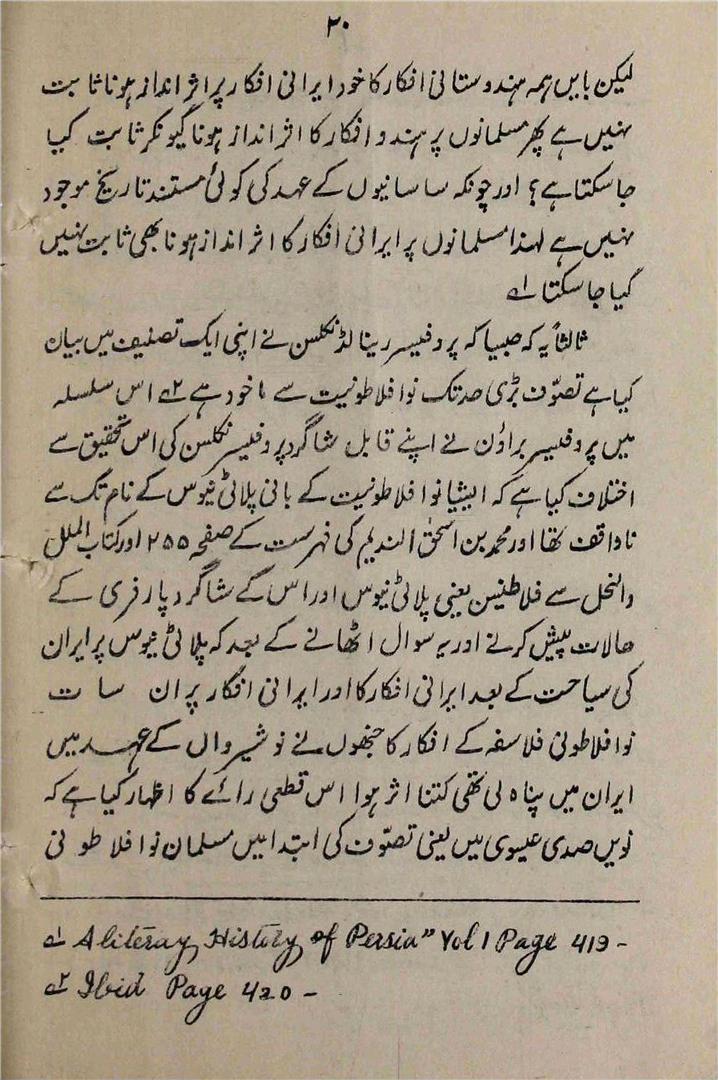 ۲۰
لیکن بایں ہمہ ہندوستانی افکار کا خود ایرانی افکار پر اثر انداز ہونا ثابت
نہیں ہے پھر مسلمانوں پر ہندو افکار کا اثر انداز ہونا کیونکر ثابت کیا
جا سکتا ہے؟ اور چونکہ ساسانیوں کے عہد کی کوئی مستند تاریخ موجود
نہیں ہے لہٰذا مسلمانوں پر ایرانی افکار کا اثر انداز ہونا بھی ثابت نہیں
کیا جا سکتا ۱؎
ثالثاً یہ کہ جیسا کہ پروفیسر رینالڈ نکلسن نے اپنی ایک تصنیف میں بیان
کیا ہے تصوّف بڑی حد تک نوافلاطونیت سے ماخوذ ہے ۲؎ اس سلسلہ
میں پروفیسر براؤن نے اپنے قابل شاگرد پروفیسر نکلسن کی اس تحقیق سے
اختلاف کیا ہے کہ ایشیا نوافلاطونیت کے بانی پلاٹی نیوس کے نام تک سے
ناواقف تھا اور محمد بن اسحٰق الندیم کی فہرست کے صفحہ ۲۵۵ اور کتاب الملل
والنحل سے فلاطینس یعنی پلاٹی نیوس اور اس کے شاگرد پارفری کے
حالات پیش کرنے اور یہ سوال اٹھانے کے بعد کہ پلاٹی نیوس پر ایران
کی سیاحت کے بعد ایرانی افکار کا اور ایرانی افکار پر ان سات
نوافلاطونی فلاسفہ کے افکار کا جنھوں نے نوشیرواں کے عہد میں
ایران میں پناہ لی تھی کتنا اثر ہوا اس قطعی رائے کا اظہار کیا ہے کہ
نویں صدی عیسوی میں یعنی تصوّف کی ابتدا میں مسلمان نوافلاطونی
۱؎ A literay History of Persia" Vol 1 Page 419 -
۲؎ Ibid Page 420 -